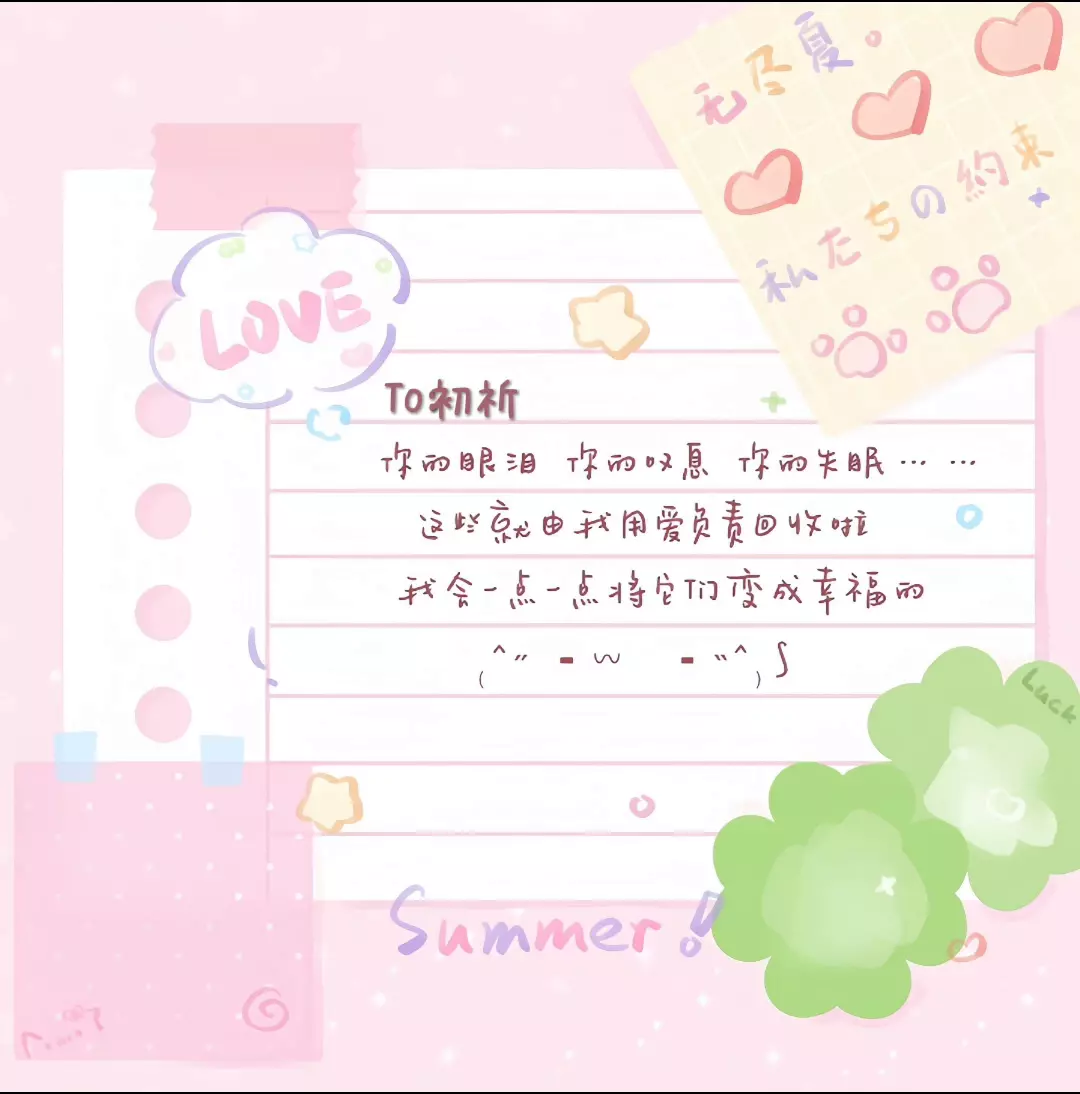 无尽夏。
私たちの約束
LOVE
To初祈
你的眼泪 你的叹息 你的失眠……
这些就由我用爱负责回收啦
我会一点一点将它们变成幸福的
Luck
Summer!